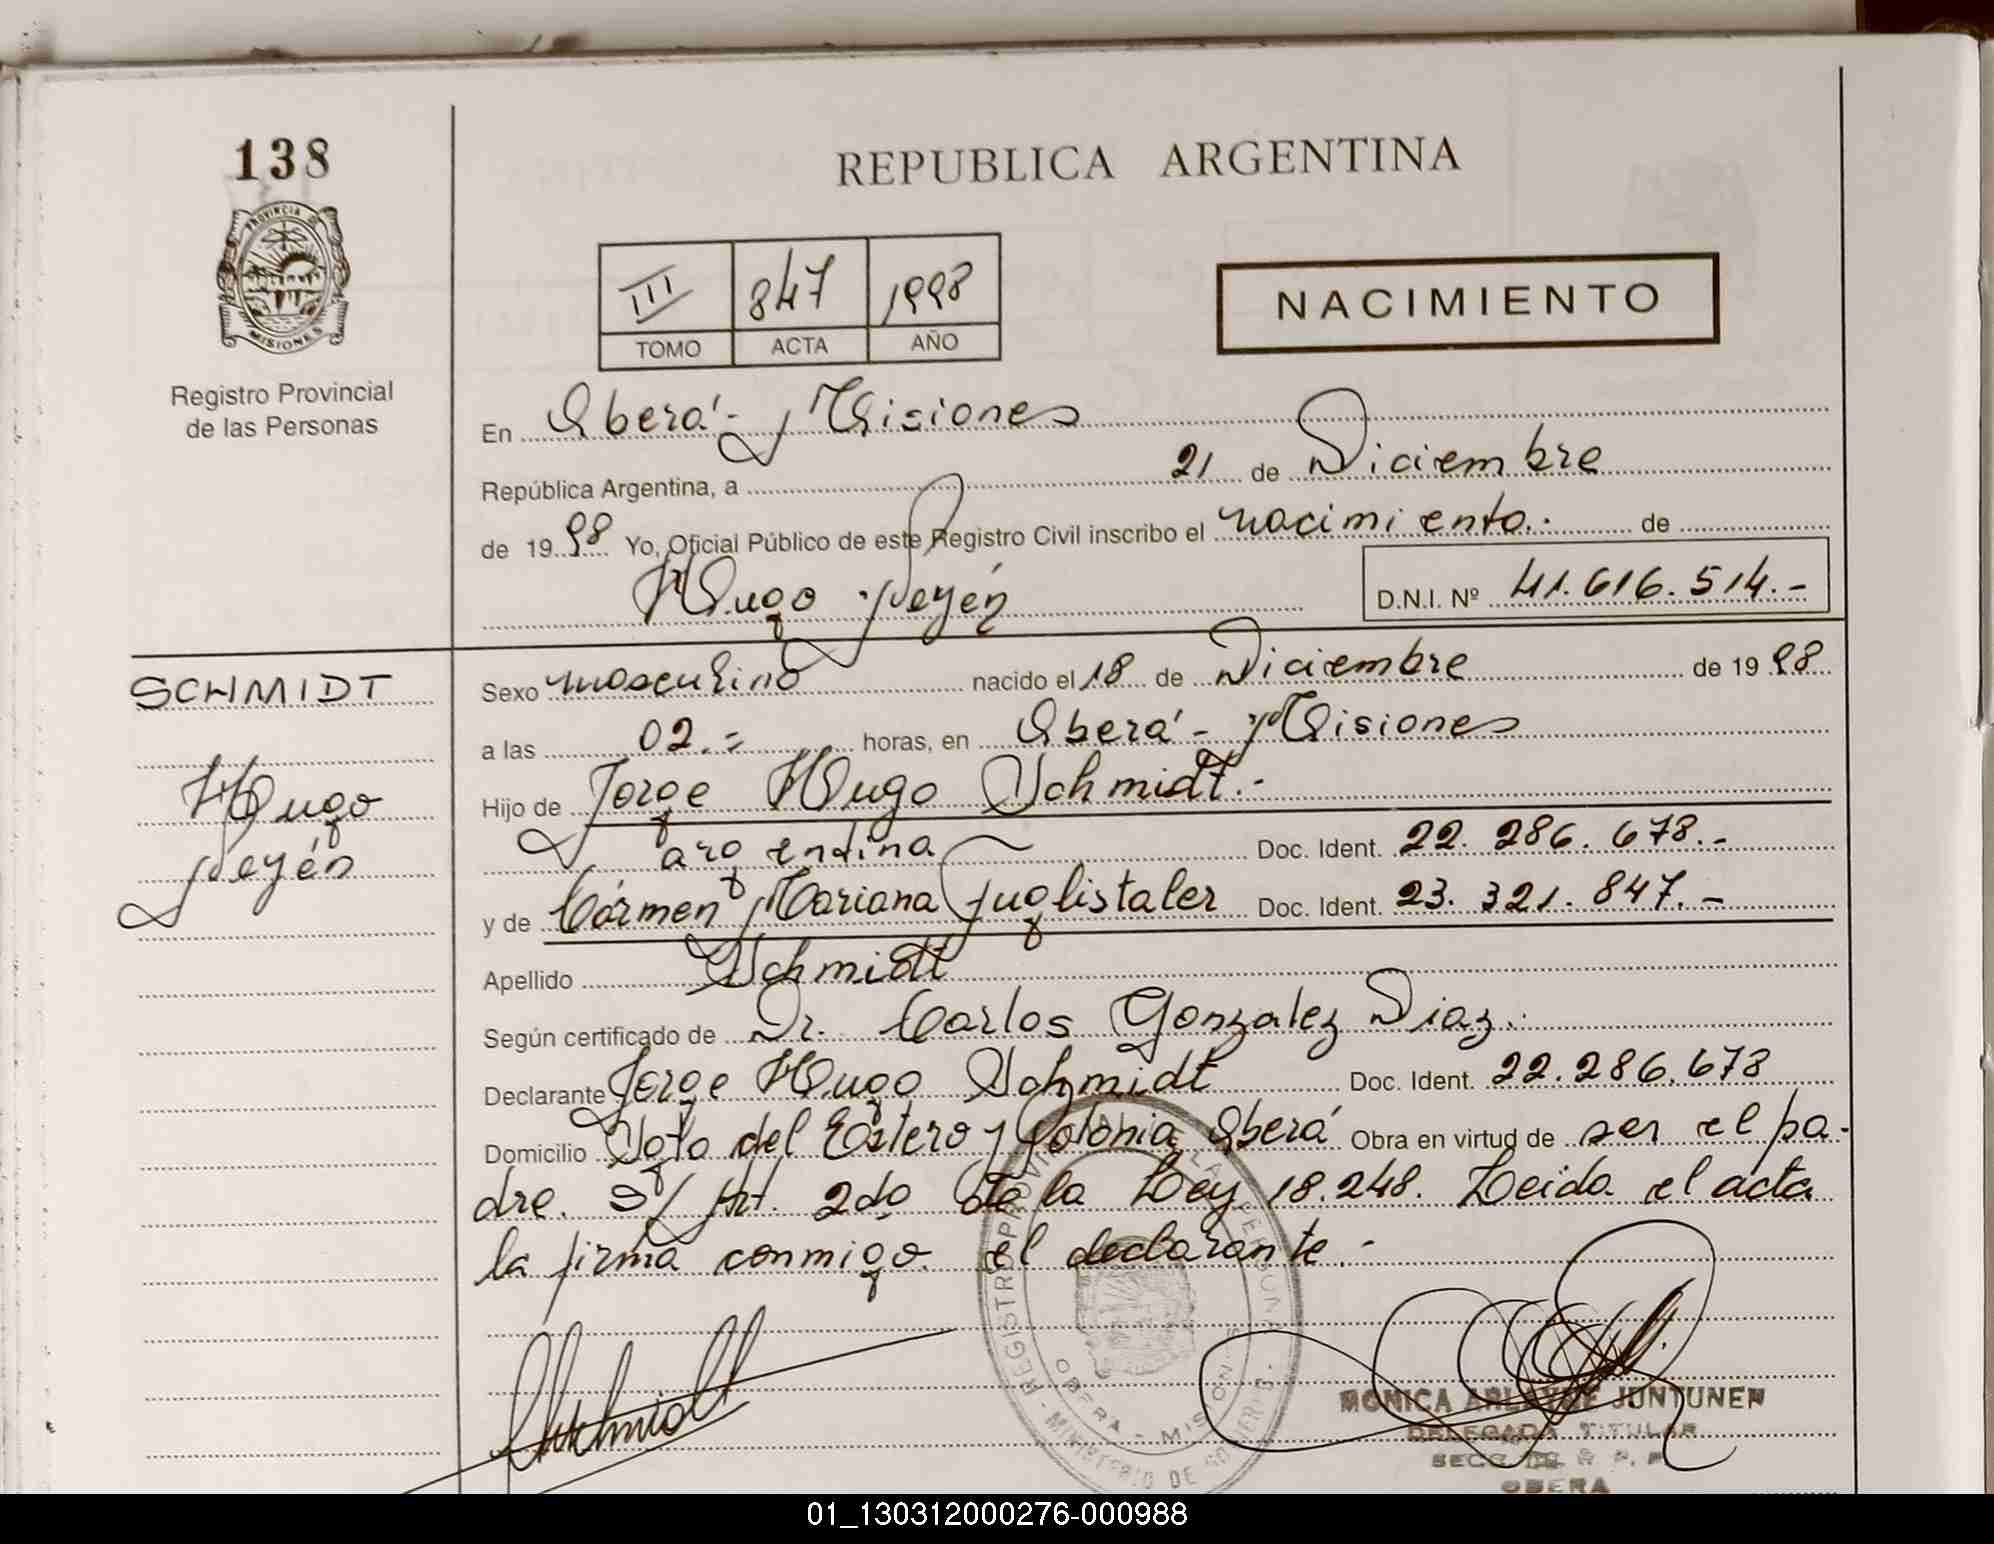 138
PROVINCIA D
MISIONES
Registro Provincial
de las Personas
REPUBLICA ARGENTINA
III 847 1998
TOMO ACTA AÑO
NACIMIENTO
En Oberá - Misiones
República Argentina, a 21 de Diciembre
de 1998 Yo, Oficial Público de este Registro Civil inscribo el nacimiento.- de
Hugo Seyén
D.N.I. Nº 41.616.514.-
SCHMIDT
Hugo
Seyén
Sexo masculino nacido el 18 de Diciembre de 1998
a las 02.= horas, en Oberá - Misiones
Hijo de Jorge Hugo Schmidt.-
argentina Doc. Ident. 22.286.678.-
y de Cármen Mariana Juglistaler Doc. Ident. 23.321.847.-
Apellido Schmidt
Según certificado de Dr. Carlos Gonzalez Diaz.-
Declarante Jorge Hugo Schmidt Doc. Ident. 22.286.678
Domicilio Sgto del Estero y Colonia Oberá Obra en virtud de ser el pa-
dre. S/ Art. 2do de la Ley 18.248. Leida el acta
la firma conmigo el declarante.-
Schmidt
REGISTRO PROVINCIAL DE LAS PERSONAS - MINISTERIO DE GOBIERNO -
OBERA - MISIONES
MONICA ARLAYNE JUNTUNEN
DELEGADA TITULAR
SECC. DE R. P. P.
OBERA
01_130312000276-000988